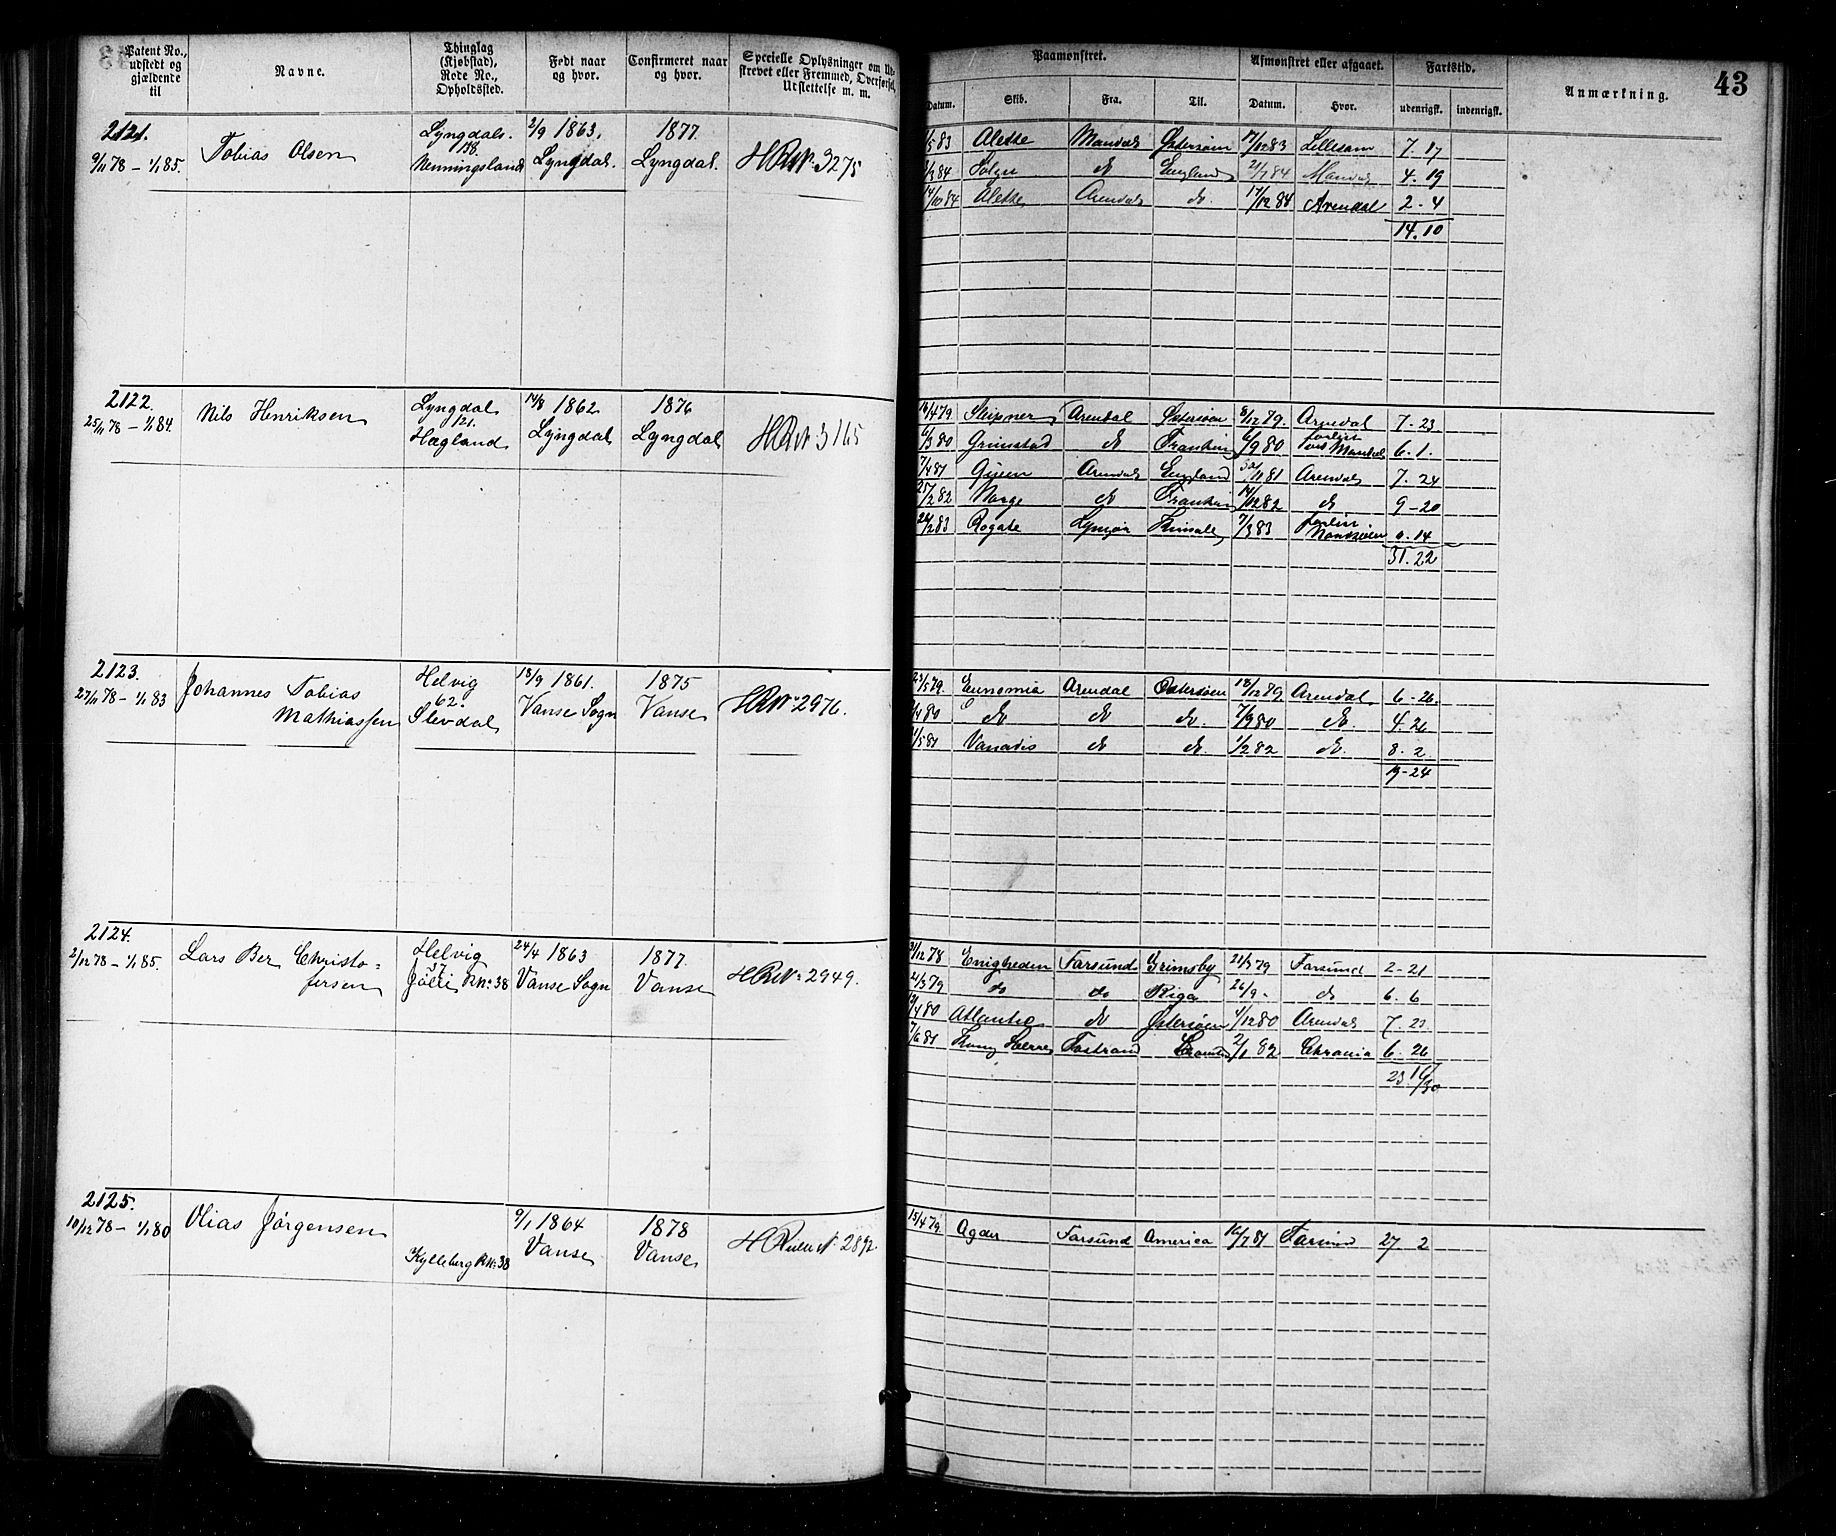 Patent No., udstedt og gjældende til
Navne.
Thinglag (Kjøbstad), Rode No., Opholdssted.
Født naar og hvor.
Confirmeret naar og hvor.
Specielle Oplysninger om Udskrevet eller Fremmed, Overførsel, Udslettelse m. m.
Paamønstret.
Datum. Skib. Fra. Til.
Afmønstret eller afgaaet.
Datum. Hvor.
Fartstid.
udenrigsk. indenrigsk.
Anmærkning.
43
2121.
9/11 78 – 1/1 85.
Tobias Olsen
Lyngdals.
118
Nenningsland
2/9 1863.
Lyngdal.
1877.
Lyngdal.
HR№ 3275
/5 83 Alette Mandal Østersøen 17/12 83 Lillesand 7. 17
/1 84 Solgu do England 21/7 84 Mandal 4. 19
14/10 84 Alette Arendal do. 17/12 84 Arendal 2 - 4
14. 10
2122.
25/11 78 – 1/1 84.
Nils Henriksen
Lyngdal
121.
Hægland
14/8 1862
Lyngdal
1876
Lyngdal
HR№ 3165
16/4 79 Skipner Arendal Østersøen 8/12 79. Arendal 7 - 23
6/3 80 Grimstad do 6/9 80 forlist 6. 1.
7/4 81 Arendal England 30/11 81 Arendal 7. 24
25/2 82 Norge do 14/12 82 do 9 - 20
26/2 83 Rogate Lyngør 7/3 83 forlist 0. 14
31. 22
2123.
27/11 78 – 1/1 83
Johannes Tobias
Mathiassen
Helvig
62.
Slevdal
18/9 1861.
Vanse Sogn
1875
Vanse
HR№: 2976.
23/5 79. Eunomia Arendal Østersøen 18/12 79 Arendal 6 - 26
/4 80 do do do. 7/9 80 do. 4. 26
/5 81 Vanadis do do. 1/2 82 do. 8. 2.
19 - 24
2124.
2/12 78 – 1/1 85.
Lars Ber Christo=
fersen
Helvig
37
Jølle R№: 38
24/4 1863
Vanse Sogn
1877.
Vanse
HR№: 2949.
31/12 78 Enigheden Farsund Grimsby 21/3 79 Farsund 2 - 21
2/3 79 do do Riga 26/9 - do 6. 6
/4 80 Atlantic do Østersøen 4/12 80 Arendal 7. 23
7/6 81 Kong Sverre Fostrand 2/1 82 Chrania 6. 26
23 16/30
2125.
10/12 78 – 1/1 80
Olias Jørgensen
Kylleberg R№: 38
9/1 1864
Vanse
1878
Vanse
H Rulle № 2892
15/4 79 Agder Farsund America 16/7 81 Farsund 27 2